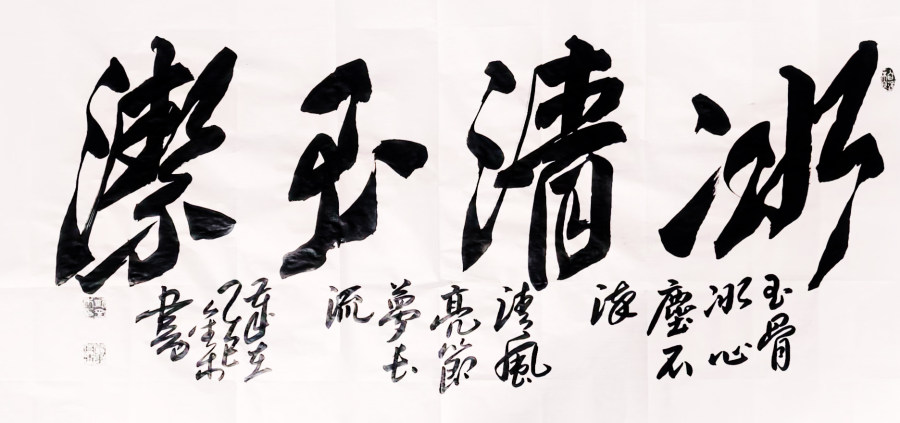 冰清玉潔
玉骨
冰心
塵不
清風
亮節
夢長
流
歲在
書